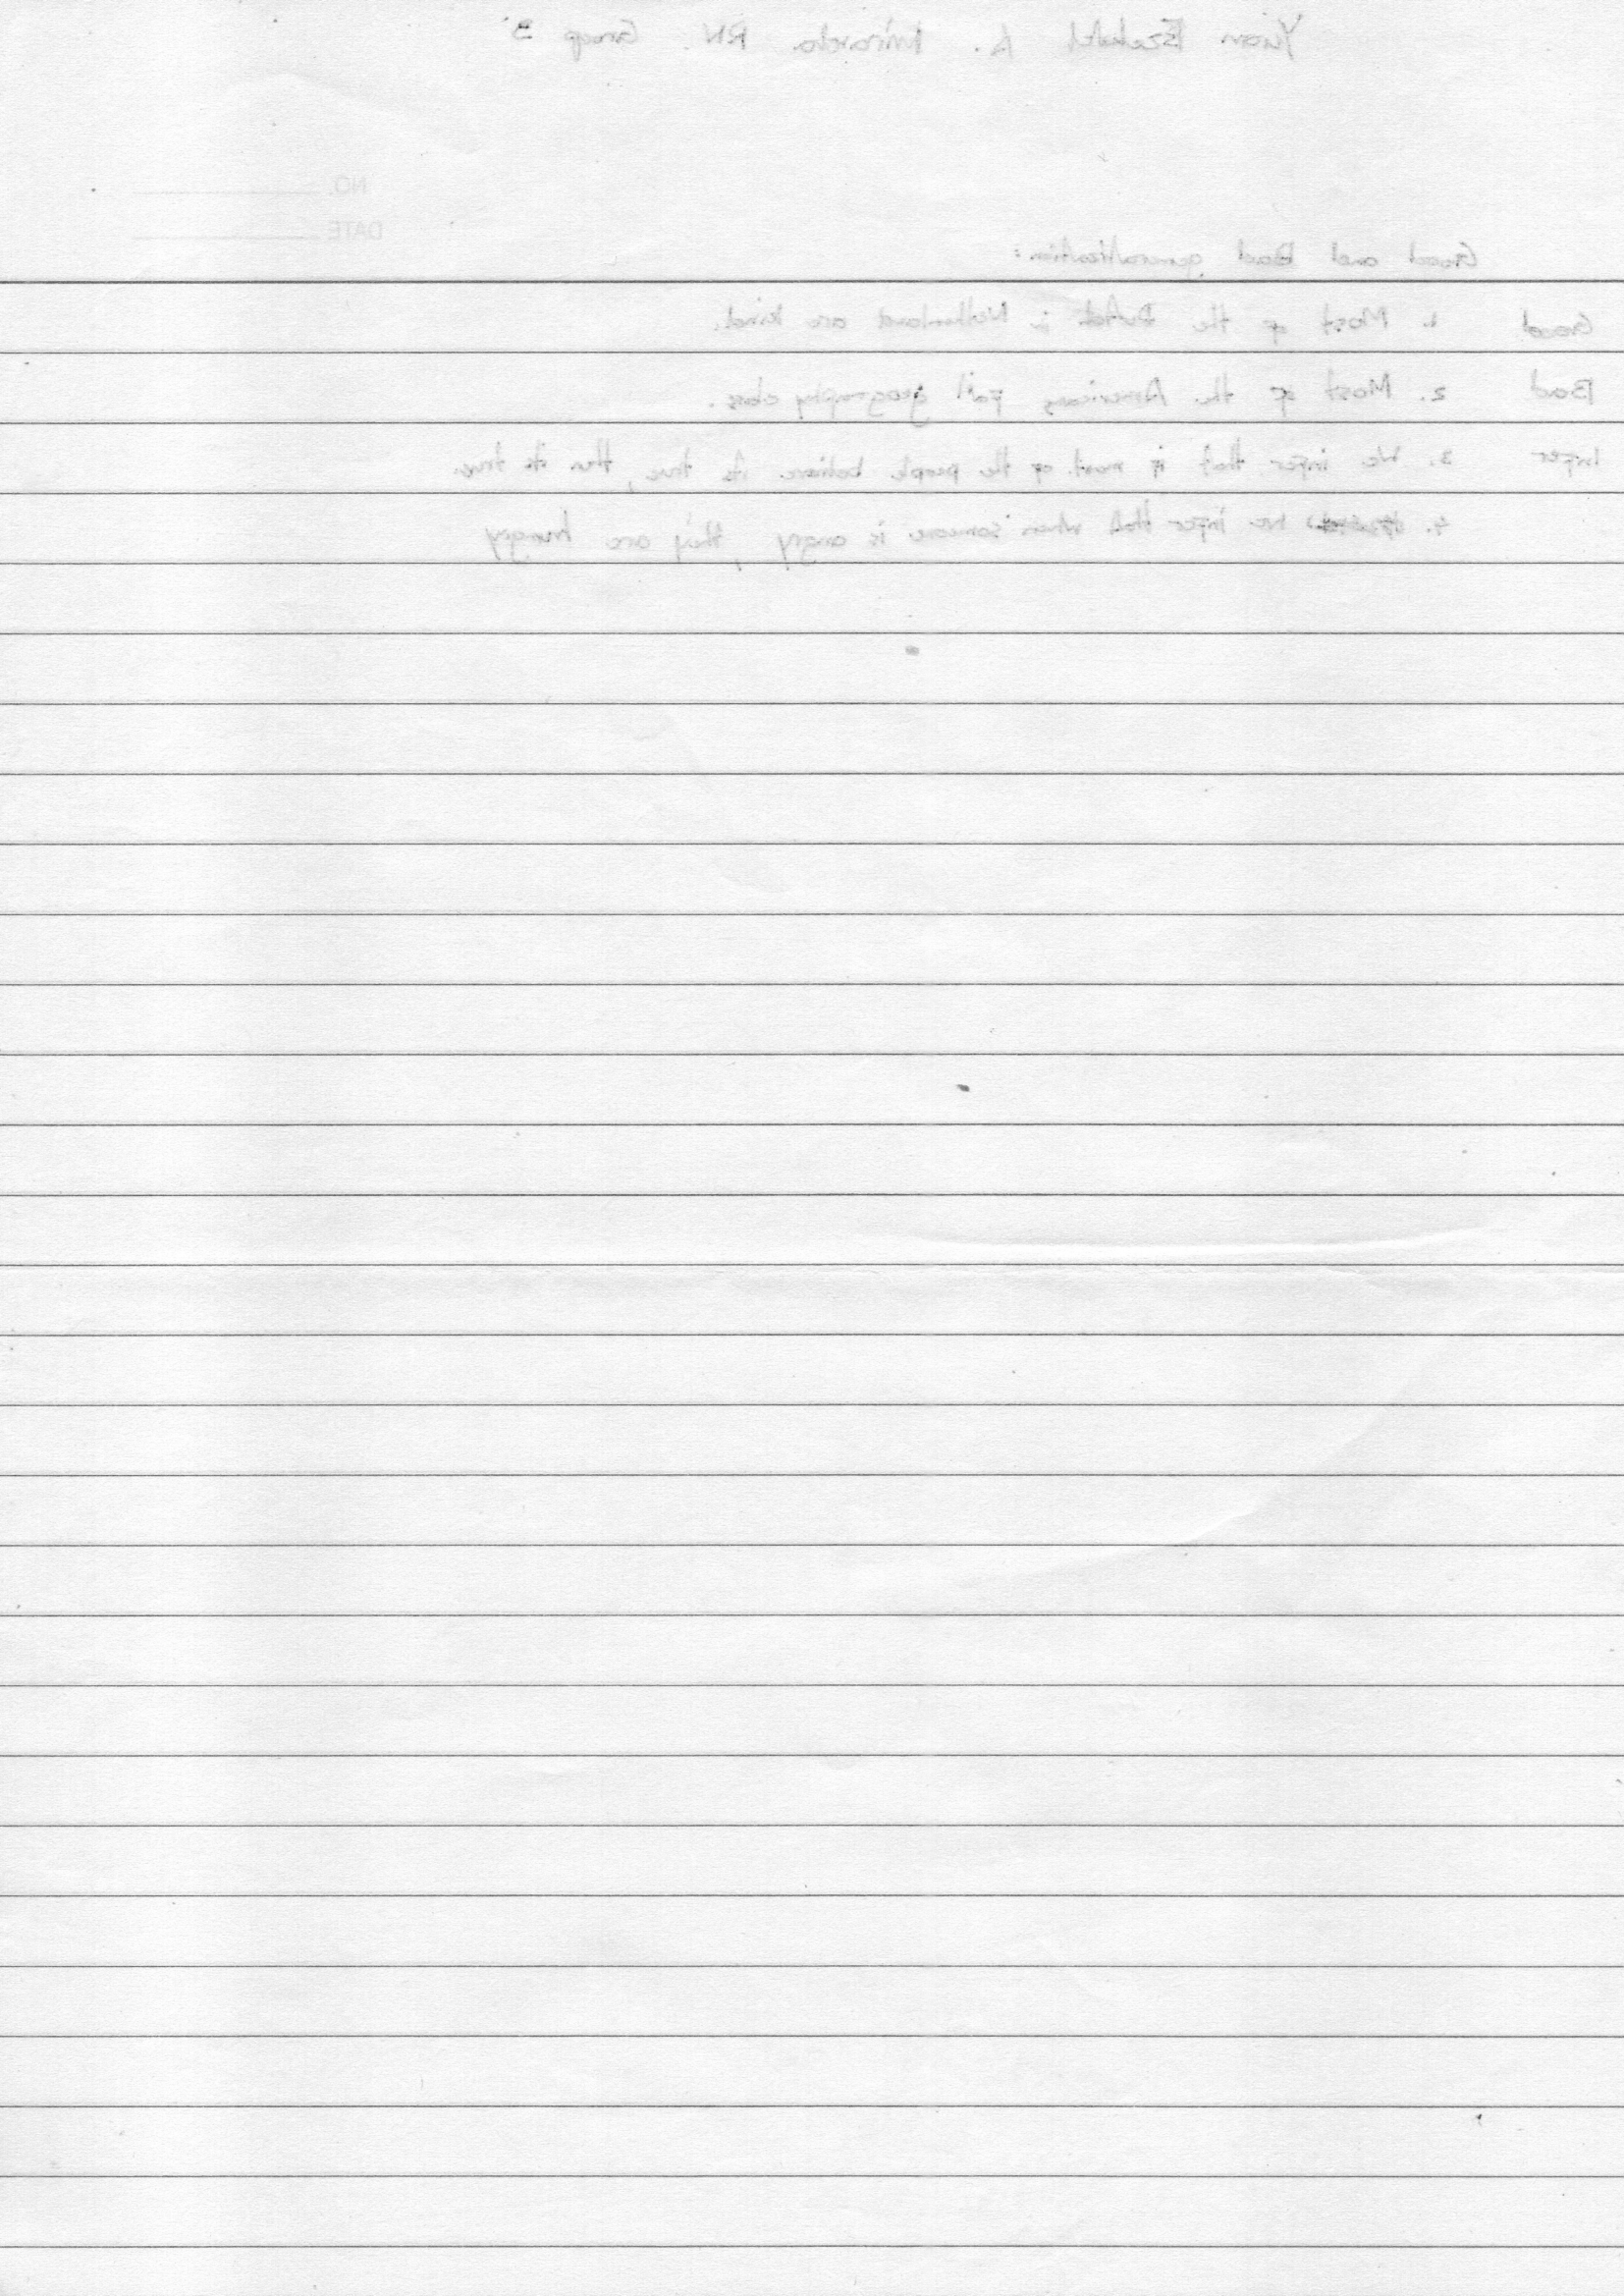 Yuan Ezekiel A. Miranda RN. Group 3
NO.
DATE
Good and Bad generalization:
Good 1. Most of the Dutch in Netherland are kind.
Bad 2. Most of the Americans fail geography class.
Infer 3. We infer that if most of the people believe its true, then its true.
4. We infer that when someone is angry, they are hungry